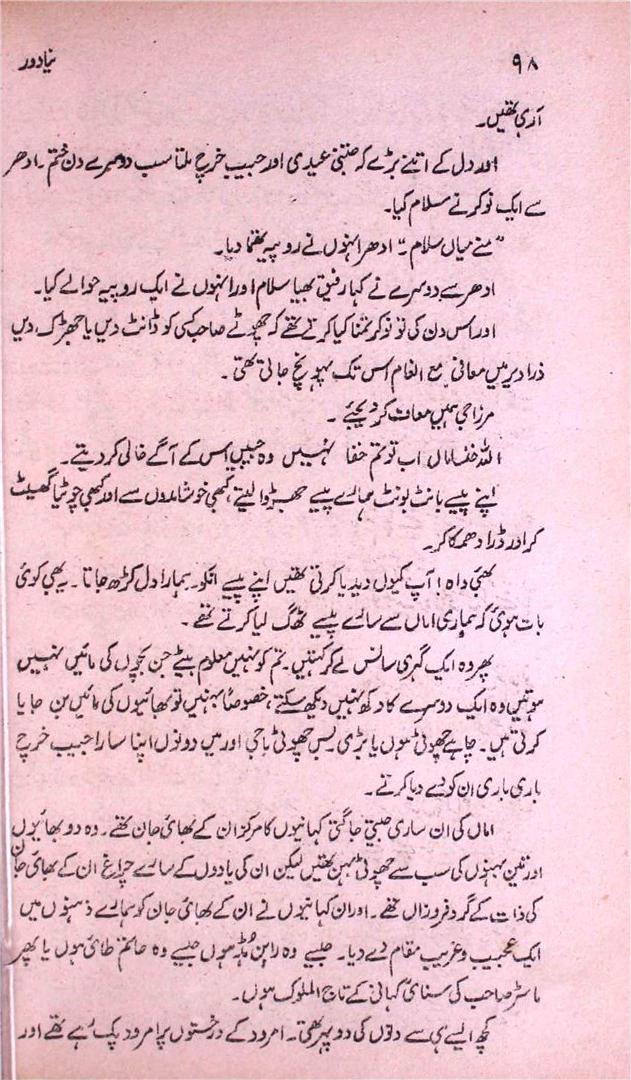 ۹۸ نیا دور
آدمی تھیں۔
اور دل کے اتنے بڑے کہ جتنی عیدی اور جیب خرچ ملتا سب دوسرے دن ختم۔ ادھر
سے ایک نوکر نے سلام کیا۔
"منے میاں سلام۔" ادھر انہوں نے روپیہ تھما دیا۔
ادھر سے دوسرے نے کہا رفیق بھیا سلام اور انہوں نے ایک روپیہ حوالے کیا۔
اور اس دن کی تو نوکر تمنا کیا کرتے تھے کہ چھوٹے صاحب کسی کو ڈانٹ دیں یا جھڑک دیں
ذرا دیر میں معافی مع انعام اس تک پہونچ جاتی تھی۔
مرزا جی ہمیں معاف کر دیجئے۔
اللہ خانساماں اب تو تم خفا نہیں وہ جیبیں اس کے آگے خالی کر دیتے۔
اپنے پیسے بانٹ بونٹ ہمارے پیسے جھڑوا لیتے، کبھی خوشامدوں سے اور کبھی چوٹیا گھسیٹ
کر اور ڈرا دھمکا کر۔
بھئی واہ! آپ کیوں دیدیا کرتی تھیں اپنے پیسے انکو۔ ہمارا دل کڑھ جاتا۔ یہ بھی کوئی
بات ہوئی کہ ہماری اماں سے سارے پیسے ٹھگ لیا کرتے تھے۔
پھر وہ ایک گہری سانس لے کر کہتیں۔ تم کو نہیں معلوم بیٹے جن بچوں کی مائیں نہیں
ہوتیں وہ ایک دوسرے کا دکھ نہیں دیکھ سکتے، خصوصاً بہنیں تو بھائیوں کی مائیں بن جایا
کرتی ہیں۔ چاہے چھوٹی ہوں یا بڑی بس چھوٹی باجی اور میں دونوں اپنا سارا جیب خرچ
باری باری ان کو دے دیا کرتے۔
اماں کی ان ساری جیتی جاگتی کہانیوں کا مرکز ان کے بھائی جان تھے۔ وہ دو بھائیوں
اور تین بہنوں کی سب سے چھوٹی بہن تھیں لیکن ان کی یادوں کے سارے چراغ ان کے بھائی جان
کی ذات کے گرد فروزاں تھے۔ اور ان کہانیوں نے ان کے بھائی جان کو ہمارے ذہنوں میں
ایک عجیب و غریب مقام دے دیا۔ جیسے وہ رابن ہُڈ ہوں جیسے وہ حاتم طائی ہوں یا پھر
ماسٹر صاحب کی سنائی کہانی کے تاج الملوک ہوں۔
کچھ ایسے ہی سے دنوں کی دوپہر تھی۔ امرود کے درختوں پر امرود پک رہے تھے اور